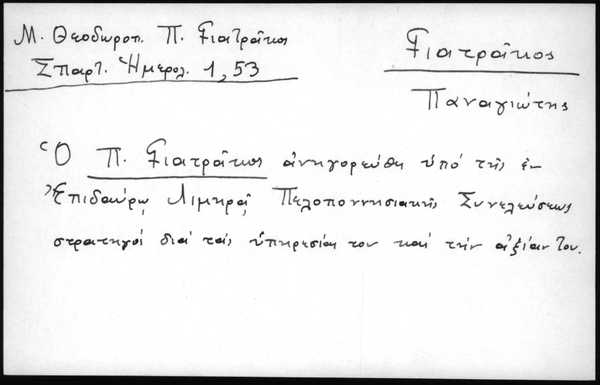 Μ. Θεοδωροπ. Π. Γιατρᾶκος
Σπαρτ. Ἡμερολ. 1, 53
Γιατρᾶκος
Παναγιώτης
Ὁ Π. Γιατρᾶκος ἀνηγορεύθη ὑπό τῆς ἐν
Ἐπιδαύρῳ Λιμηρᾷ Πελοποννησιακῆς Συνελεύσεως
στρατηγός διά τάς ὑπηρεσίας του καί τήν ἀξίαν του.